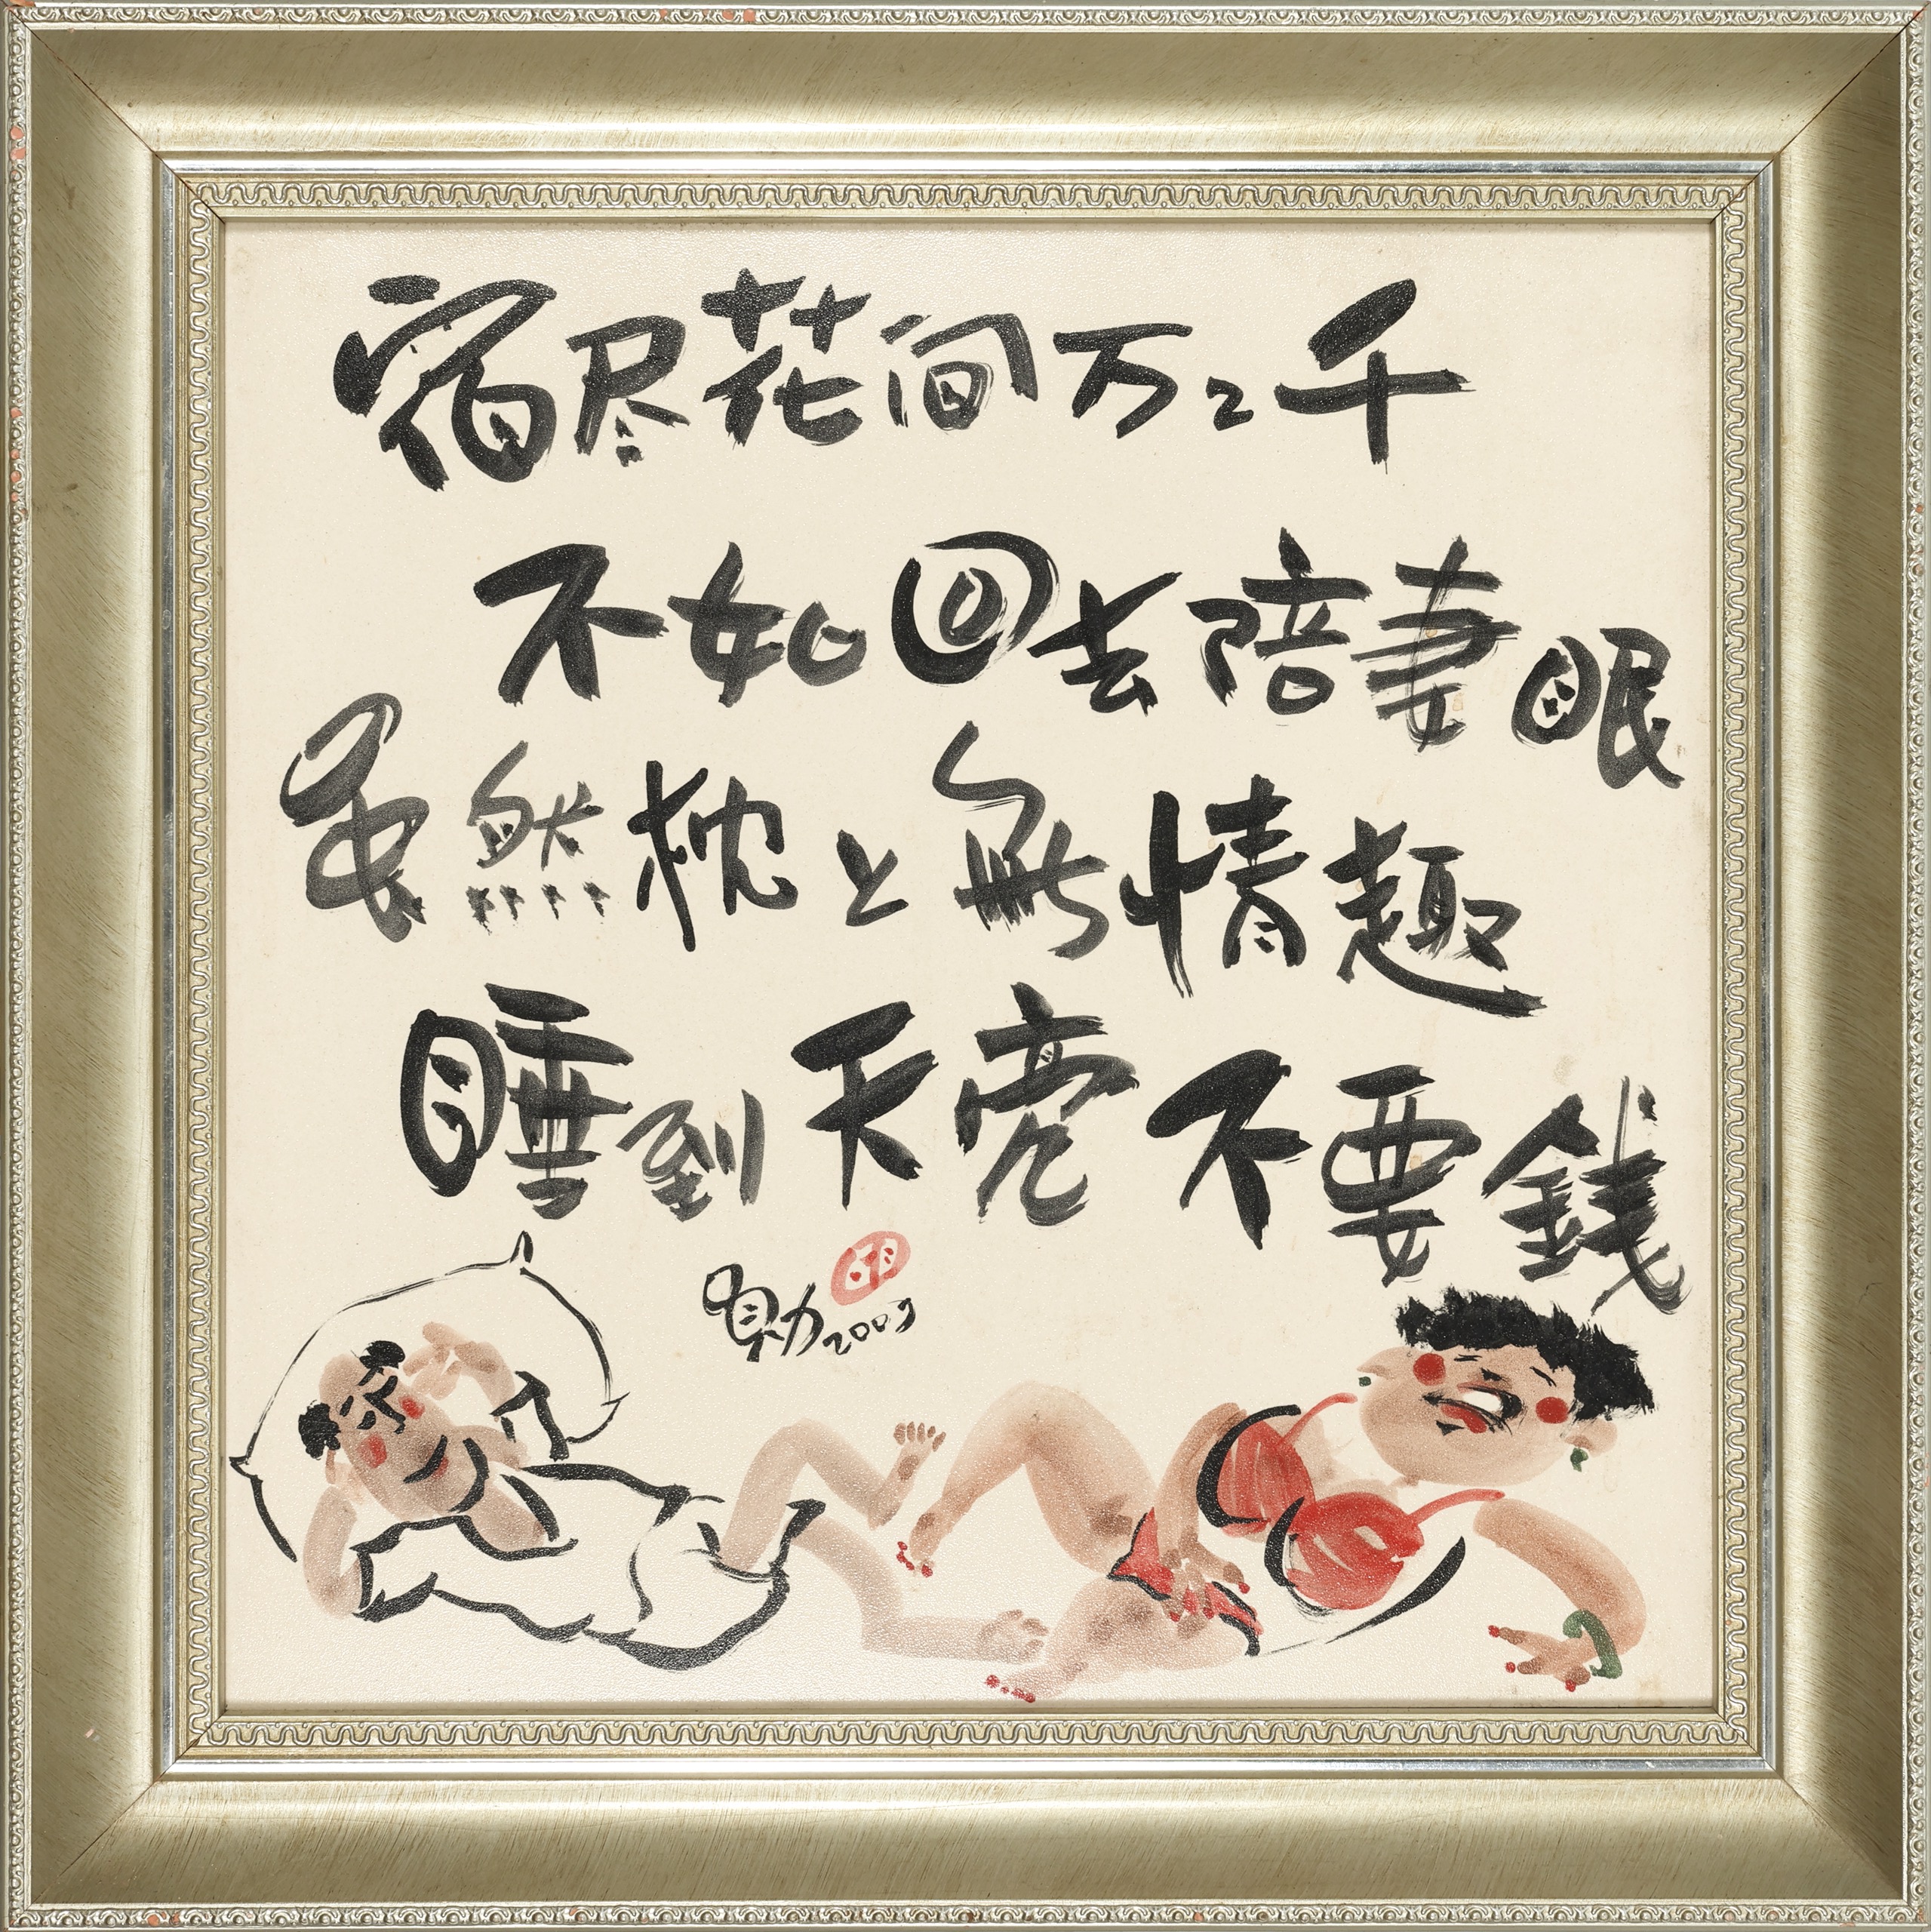 宿尽花间万々千
不如回去陪妻眠
虽然枕上無情趣
睡到天亮不要錢
勋2009